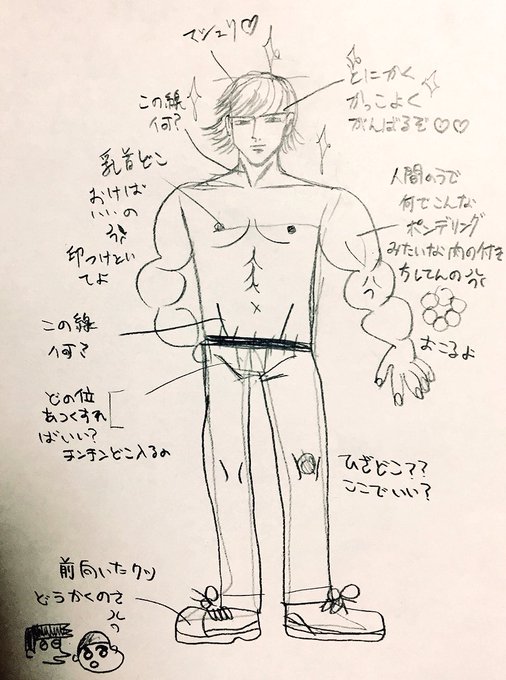 マシュリ♡
とにかく
かっこよく
がんばるぞ♡♡
この線
何?
乳首どこ
おけば
いいの
印つけといてよ
人間のうで
何でこんな
ポンデリング
みたいな肉の付き
方してんの
おこるよ
この線
何?
どの位
あつくすれ
ばいい?
チンチンどこ入るの
ひざどこ??
ここでいい?
前向いたクツ
どうかくのさ